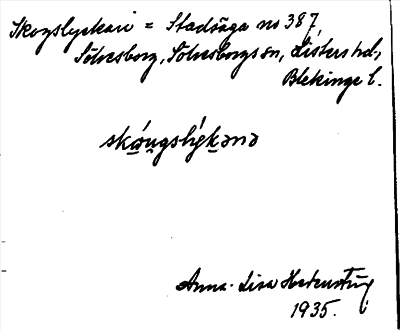 Skogslyckan = Stadsäga no 387,
Sölvesborg, Sölvesborgs sn, Listers hd,
Blekinge l.
skǻu̯gslýkənə
Anna-Lisa
1935.